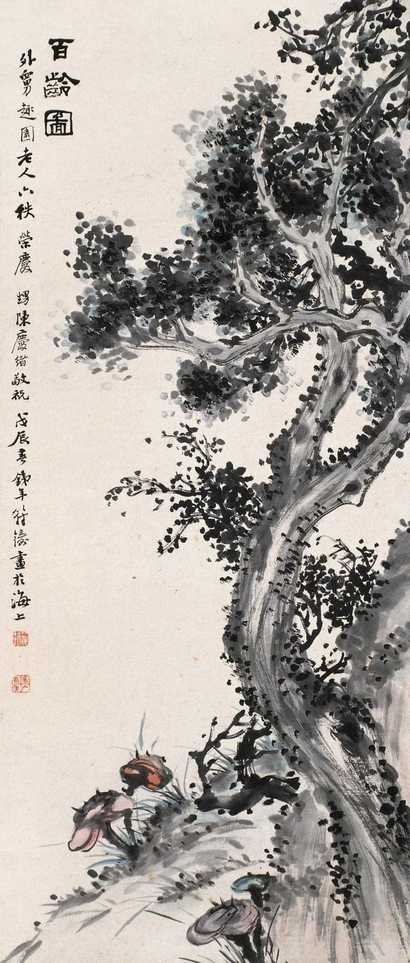 百齡圖
外舅趣園老人六秩榮慶 甥陳慶緒敬祝 戊辰春鐵年符鑄畫於海上